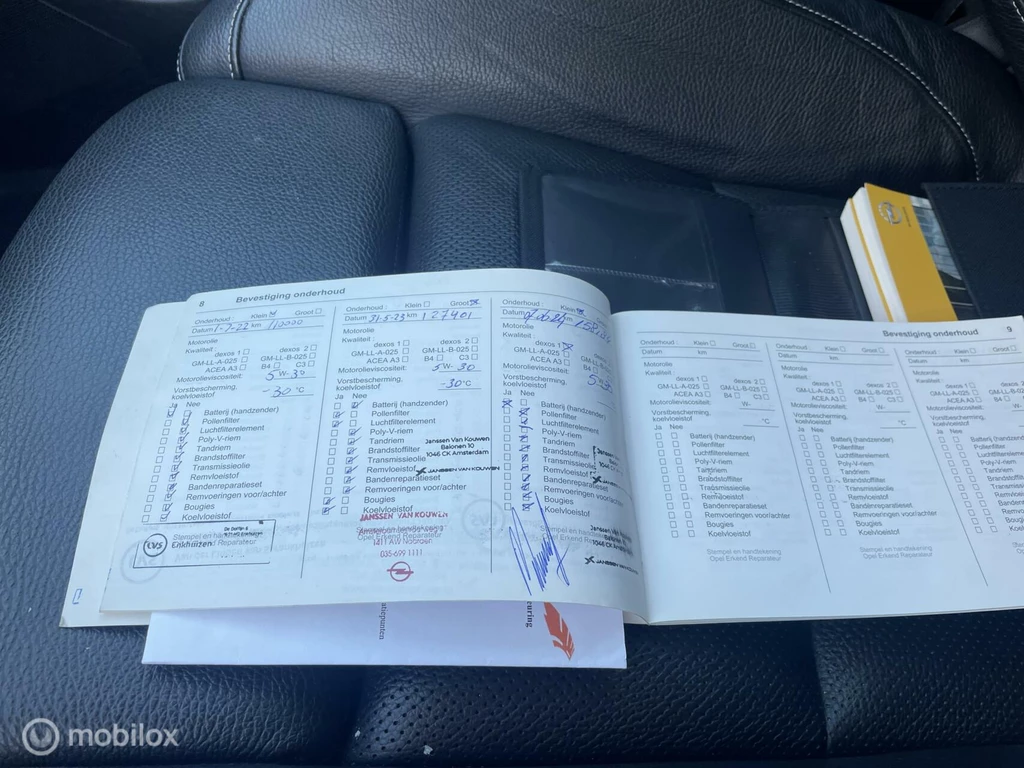 8 Bevestiging onderhoud
Onderhoud : Klein Groot
Datum 1-7-22 km 110000
Motorolie
Kwaliteit :
dexos 1 dexos 2
GM-LL-A-025 GM-LL-B-025
ACEA A3 B4 C3
Motorolieviscositeit: 5W-30
Vorstbescherming,
koelvloeistof -30°C
Ja Nee
Batterij (handzender)
Pollenfilter
Luchtfilterelement
Poly-V-riem
Tandriem
Brandstoffilter
Transmissieolie
Remvloeistof
Bandenreparatieset
Remvoeringen voor/achter
Bougies
Koelvloeistof
CVS Enkhuizen
Onderhoud : Klein Groot
Datum 31-5-23 km 127401
Motorolie
Kwaliteit :
dexos 1 dexos 2
GM-LL-A-025 GM-LL-B-025
ACEA A3 B4 C3
Motorolieviscositeit: 5W-30
Vorstbescherming,
koelvloeistof -30°C
Ja Nee
Batterij (handzender)
Pollenfilter
Luchtfilterelement
Poly-V-riem
Tandriem
Brandstoffilter
Transmissieolie
Remvloeistof
Bandenreparatieset
Remvoeringen voor/achter
Bougies
Koelvloeistof
Janssen Van Kouwen
Balonen 10
1046 CK Amsterdam
JANSSEN VAN KOUWEN
JANSSEN VAN KOUWEN
Stempel en handtekening
Opel Erkend Reparateur
1411 AW Naarden
035-699 1111
Onderhoud : Klein Groot
Datum km
Motorolie
Kwaliteit :
dexos 1
GM-LL-A-025
ACEA A3 B4
Motorolieviscositeit: 5W-30
Vorstbescherming,
koelvloeistof
Ja Nee
Batterij (handzender)
Pollenfilter
Luchtfilterelement
Poly-V-riem
Tandriem
Brandstoffilter
Transmissieolie
Remvloeistof
Bandenreparatieset
Remvoeringen voor/achter
Bougies
Koelvloeistof
JANSSEN VAN KOUWEN
Bevestiging onderhoud 9
Onderhoud : Klein Groot
Datum km
Motorolie
Kwaliteit
dexos 1 dexos 2
GM-LL-A-025 GM-LL-B-025
ACEA A3 B4 C3
Motorolieviscositeit: W-
Vorstbescherming,
koelvloeistof °C
Ja Nee
Batterij (handzender)
Pollenfilter
Luchtfilterelement
Poly-V-riem
Tandriem
Brandstoffilter
Transmissieolie
Remvloeistof
Bandenreparatieset
Remvoeringen voor/achter
Bougies
Koelvloeistof
Stempel en handtekening
Opel Erkend Reparateur
Onderhoud : Klein Groot
Datum km
Motorolie
Kwaliteit :
dexos 1 dexos 2
GM-LL-A-025 GM-LL-B-025
ACEA A3 B4 C3
Motorolieviscositeit: W-
Vorstbescherming,
koelvloeistof °C
Ja Nee
Batterij (handzender)
Pollenfilter
Luchtfilterelement
Poly-V-riem
Tandriem
Brandstoffilter
Transmissieolie
Remvloeistof
Bandenreparatieset
Remvoeringen voor/achter
Bougies
Koelvloeistof
Stempel en handtekening
Opel Erkend Reparateur
Onderhoud : Klein
Datum km
Motorolie
Kwaliteit :
dexos 1
GM-LL-A-025
ACEA A3
Motorolieviscositeit:
Vorstbescherming,
koelvloeistof
Ja Nee
Batterij (handzender)
Pollenfilter
Luchtfilterelement
Poly-V-riem
Tandriem
Brandstoffilter
Transmissieolie
Remvloeistof
Bandenreparatieset
Remvoeringen voor
Bougies
Koelvloeistof
Stempel en
Opel Erkend
mobilox